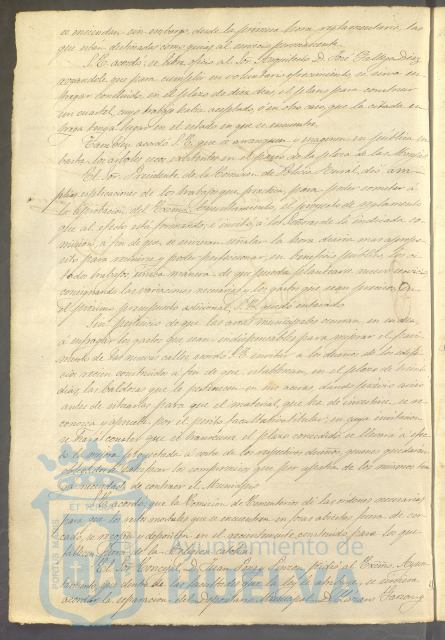 se enciendan sin embargo, desde la primera hora reglamentaria, las
que estan destinadas como guias al servicio permanente.
S.E. acordó, se libre oficio al Sor. Arquitecto D. José
rogandole que para cumplir su voluntario ofrecimiento, se sirva en-
tregar concluido, en el plazo de diez dias, el plano para construir
un cuartel, cuyo trabajo habia aceptado, ó en otro caso que la citada en-
trega tenga lugar en el estado en que se encuentre.
Tambien acordó S.E. que se arranquen y enagenen en publica su-
basta los arboles secos existentes en el paseo de la plaza de las
El Sor. Presidente de la Comision de Policia Rural, dió am-
plias esplicaciones de los trabajos que practica, para poder someter á
la aprobacion del Excmo. Ayuntamiento, el proyecto de reglamento
que al efecto está formando, é invitó, á los Señores de la indicada co-
mision, á fin de que se sirvieran señalar la hora diaria mas á propo-
sito para reunirse y poder perfeccionar, en beneficio publico, los ci-
tados trabajos, unica manera de que pueda plantearse nuevo servicio
consignando las variaciones necesarias y los gastos que sean precisos, en
el proximo presupuesto adicional. S.E. quedó enterado.
Sin perjuicio de que las arcas municipales ocurran, en su dia,
á sufragar los gastos que sean indispensables para mejorar el pavi-
mento de las nuevas calles, acordó S.E. invitar á los dueños de los edifi-
cios recien construidos á fin de que, establezcan, en el plazo de treinta
dias, las baldosas que les pertenecen en sus aceras, dando previo aviso
antes de sitiarlas para que el material, que ha de invertirse, se re-
conozca y apruebe por el perito facultativo titular; en cuya invitacion
se hará constar que si trascurre el plazo concedido se llevará á efec-
to la mejora proyectada á costa de los respectivos dueños, quienes quedaran
obligados á satisfacer los compromisos que por apatia de los mismos ten-
ga necesidad de contraer el Municipio.
Se acordó, que la Comision de Cementerios dé las ordenes necesarias
para que los restos mortales que se encuentran en fosas abiertas fuera de cer-
cado, se recojan y depositen en el nuevamente construido para los que
fallezcan fuera de la Religion catolica.
El Sor. Concejal D. Juan Perez pidió al Excmo. Ayun-
tamiento, que dentro de las facultades que la ley le atribuye, se sirviera
acordar la separacion del Depositario Municipal D. Mariano
Ayuntamiento de
MURCIA